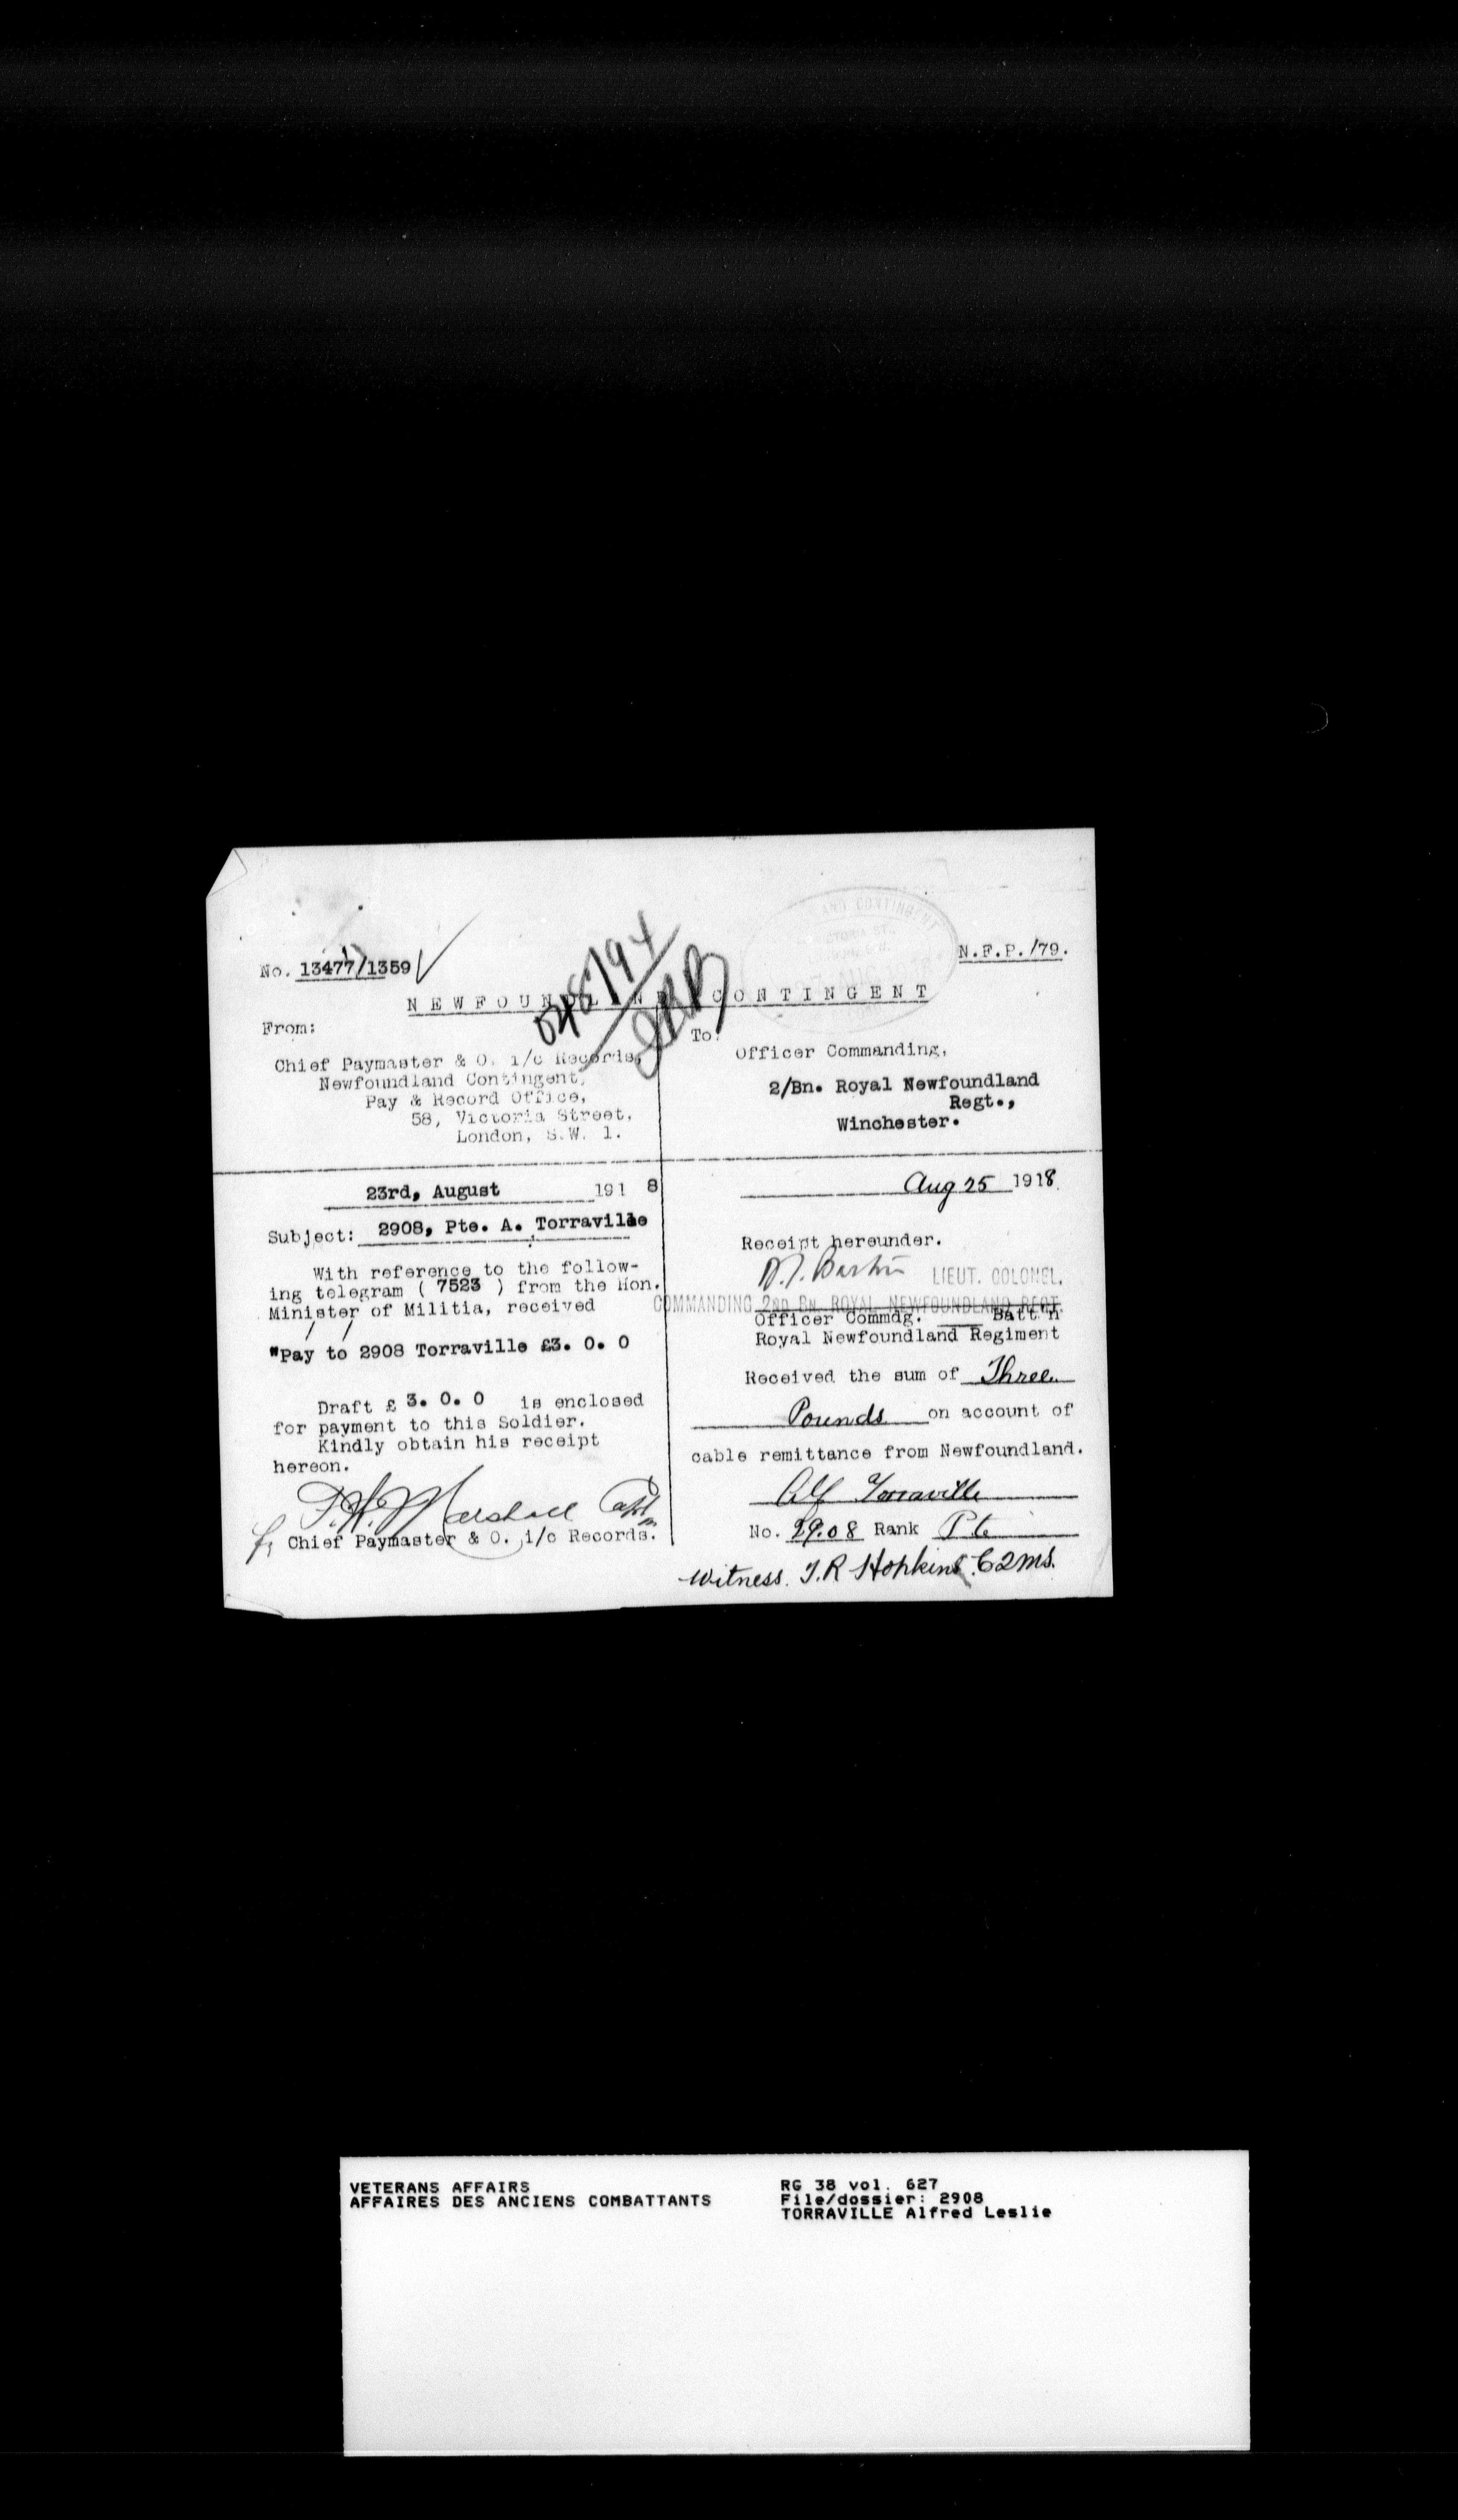 No. 13477/1359
N.F.P./79.
NEWFOUNDLAND CONTINGENT
From:
Chief Paymaster & O. i/c Records,
Newfoundland Contingent,
Pay & Record Office,
58, Victoria Street,
London, S.W. 1.
To:
Officer Commanding,
2/Bn. Royal Newfoundland
Regt.,
Winchester.
23rd, August 1918
Subject: 2908, Pte. A. Torraville
With reference to the follow-
ing telegram ( 7523 ) from the Hon.
Minister of Militia, received
"Pay to 2908 Torraville £3. 0. 0
Draft £ 3. 0. 0 is enclosed
for payment to this Soldier.
Kindly obtain his receipt
hereon.
Marshall Capt
Chief Paymaster & O. i/c Records.
Aug 25 1918.
Receipt hereunder.
LIEUT. COLONEL,
COMMANDING 2ND BN. ROYAL NEWFOUNDLAND REGT.
Officer Commdg. Batt'n
Royal Newfoundland Regiment
Received the sum of Three
Pounds on account of
cable remittance from Newfoundland.
Alf Torraville
No. 29.08 Rank Pte
Witness. J.R Hopkins C2MS.
VETERANS AFFAIRS
AFFAIRES DES ANCIENS COMBATTANTS
RG 38 vol. 627
File/dossier: 2908
TORRAVILLE Alfred Leslie